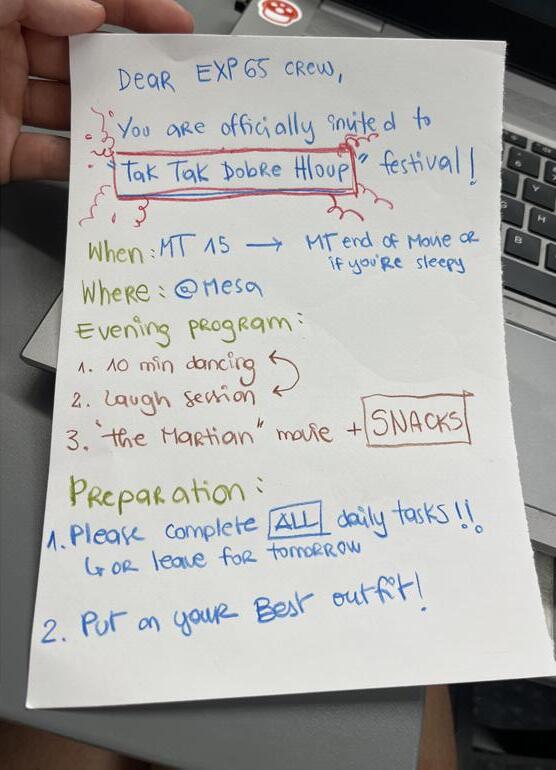 Dear EXP65 crew,
You are officially invited to
"Tak Tak Dobre Hloup" festival!
When: MT 15 → MT end of Movie or
if you're sleepy
Where: @Mesa
Evening program:
1. 10 min dancing
2. Laugh session
3. "the Martian" movie + SNACKS
Preparation:
1. Please complete ALL daily tasks!!
↳ or leave for tomorrow
2. Put on your Best outfit!